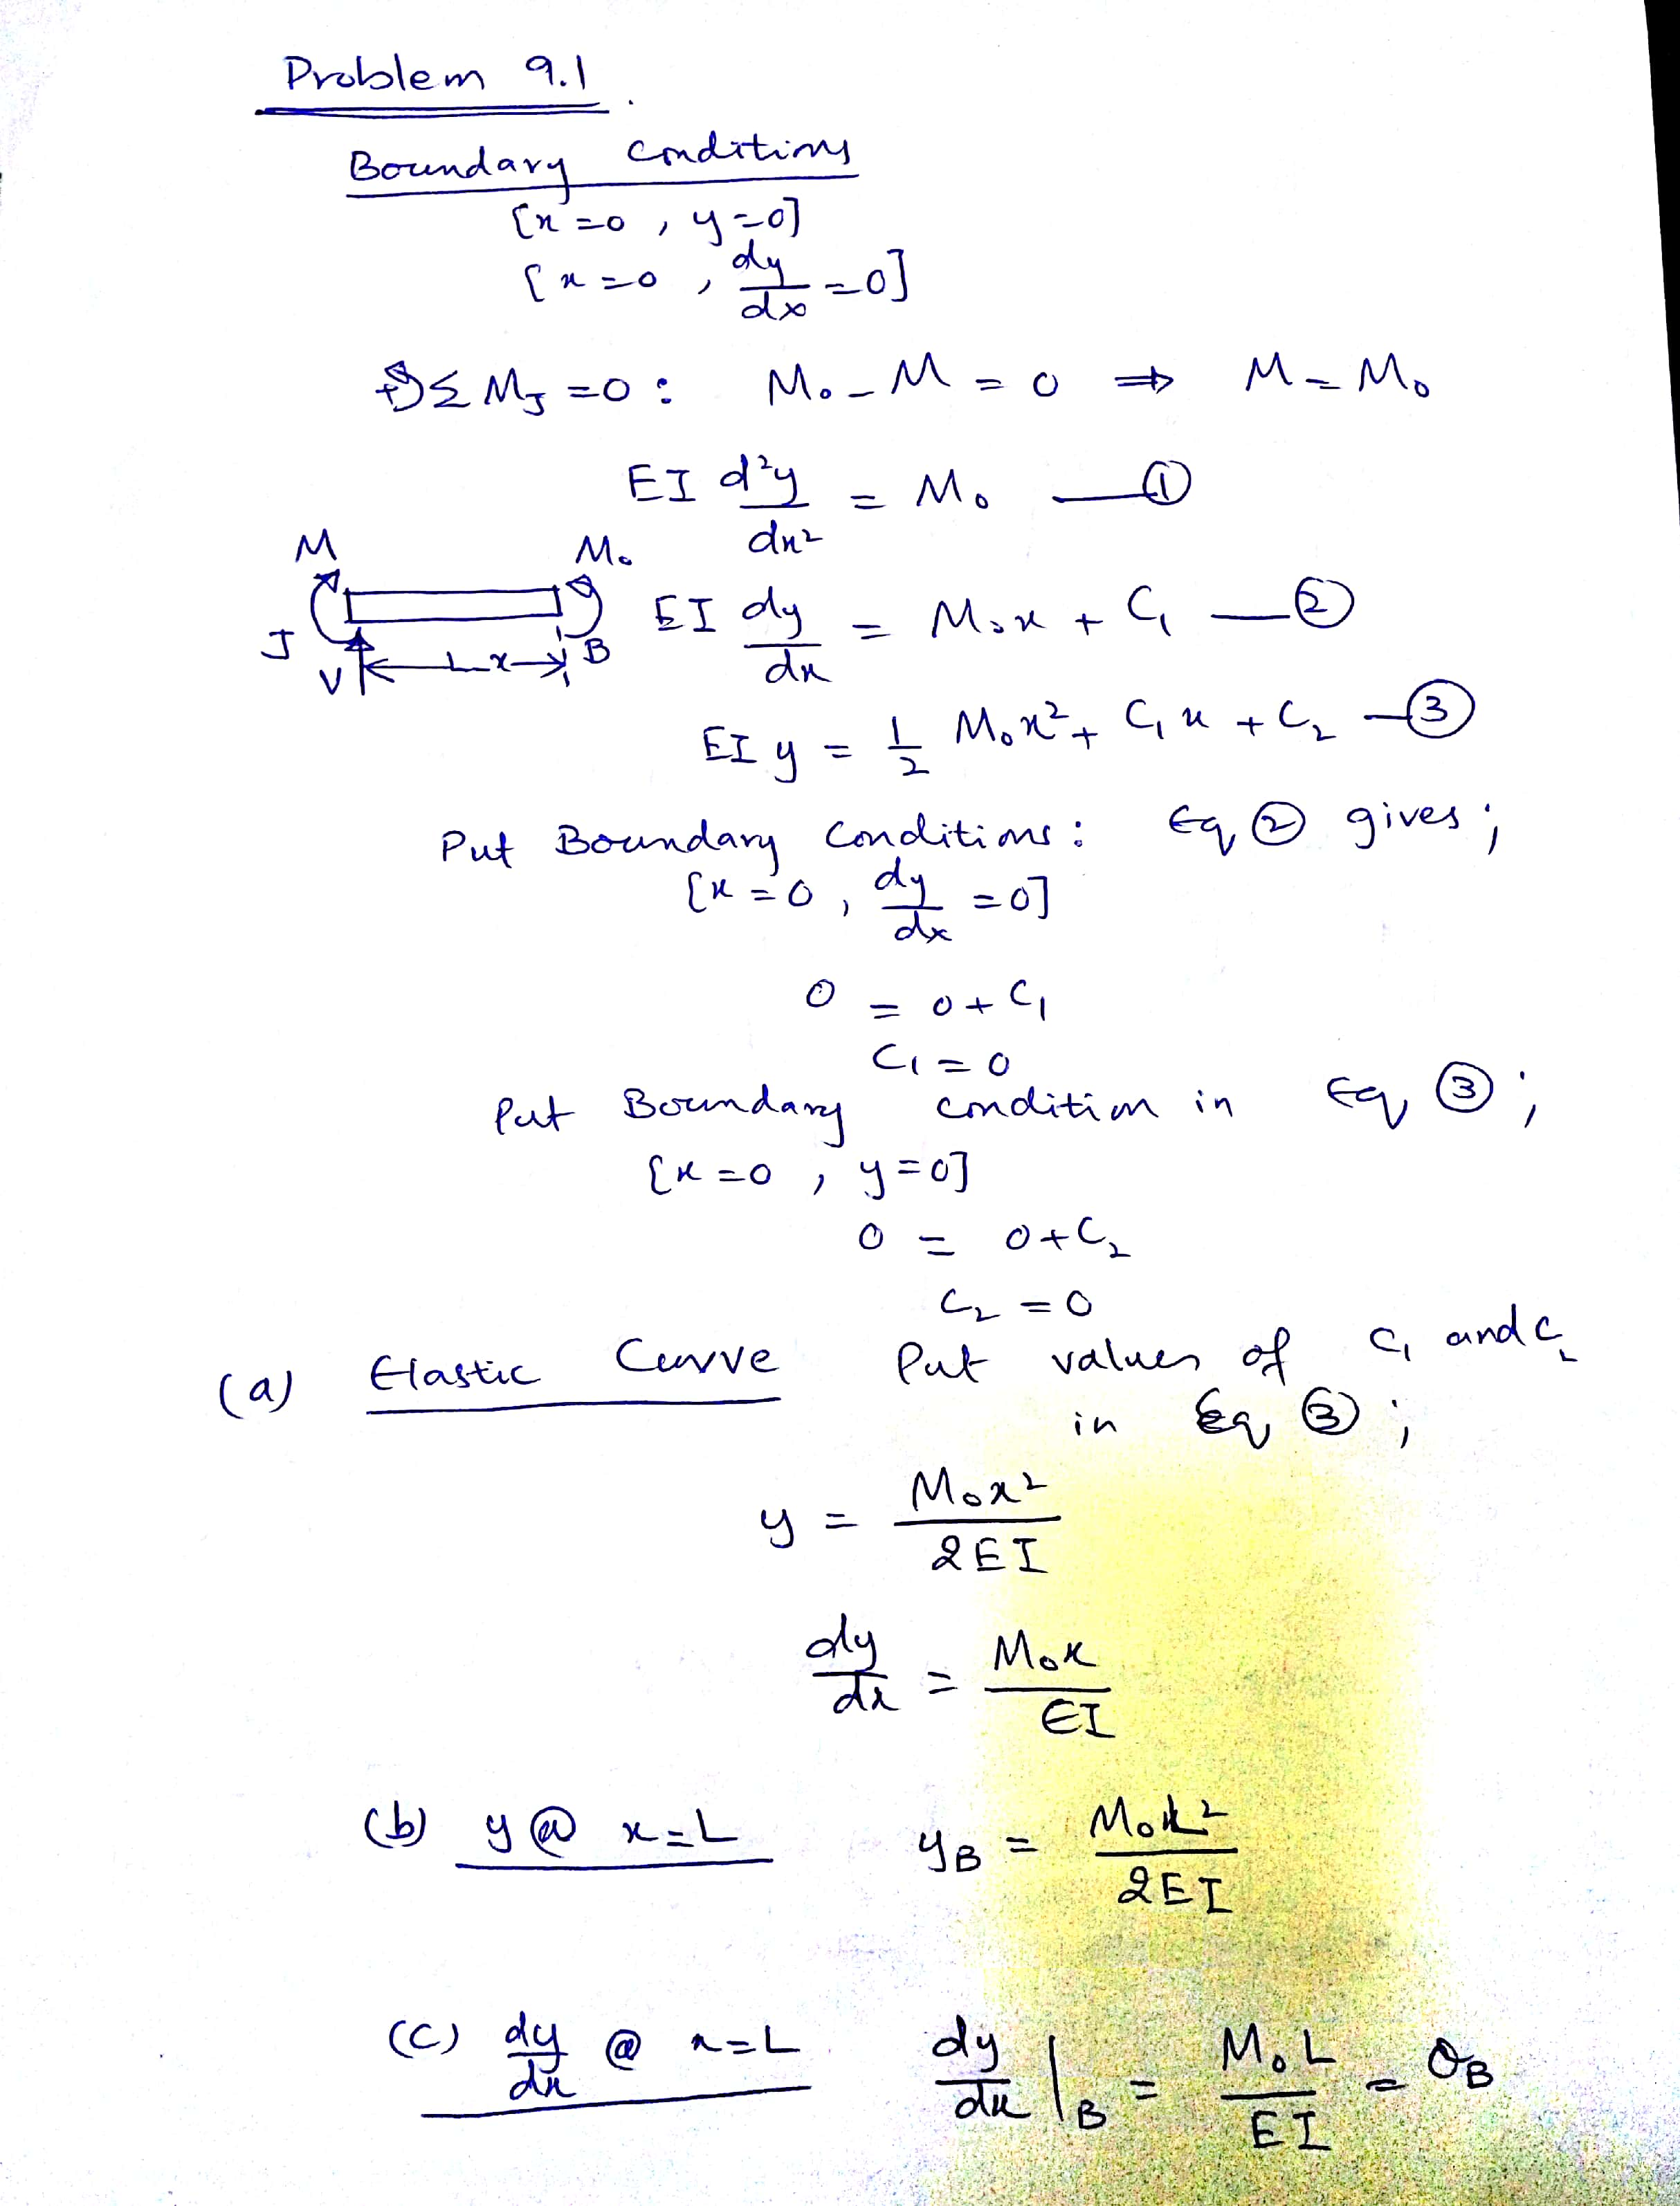 Problem 9.1
Boundary Conditions
[x=0, y=0]
[x=0, dy/dx=0]
+↺ΣM_J=0: M₀-M=0 ⇒ M=M₀
EI d²y/dx² = M₀ —①
M M₀
EI dy/dx = M₀x + C₁ —②
J V L-x B
EI y = 1/2 M₀x² + C₁x + C₂ —③
Put Boundary Conditions: Eq ② gives;
[x=0, dy/dx=0]
0 = 0+C₁
C₁=0
Put Boundary condition in Eq ③;
[x=0, y=0]
0 = 0+C₂
C₂=0
(a) Elastic Curve Put values of C₁ and C₂
in Eq ③;
y = M₀x²/2EI
dy/dx = M₀x/EI
(b) y @ x=L y_B = M₀L²/2EI
(c) dy/dx @ x=L dy/dx |_B = M₀L/EI = θ_B